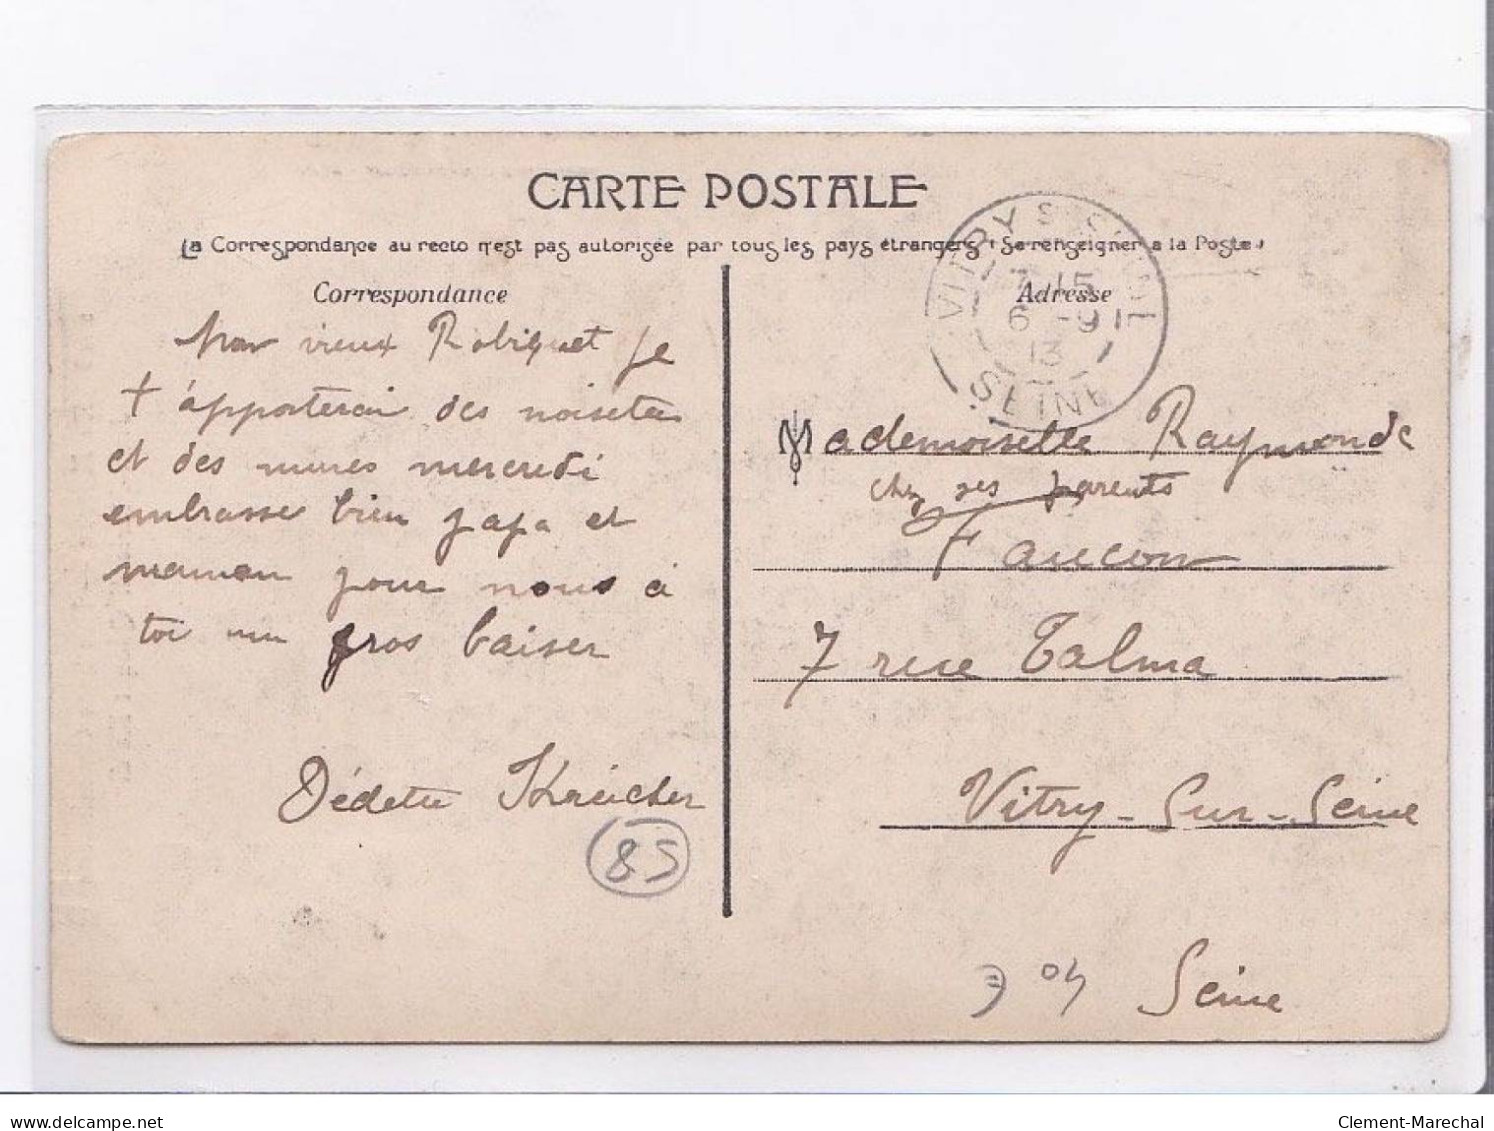 CARTE POSTALE
La Correspondance au recto n'est pas autorisée par tous les pays étrangers (Se renseigner a la Poste)
Correspondance
Mon vieux Robiquet je
t'apporterai des noisetes
et des mures mercredi
embrasse bien papa et
maman pour nous à
toi un gros baiser
Dédette Kreicher
85
Adresse
VITRY S SEINE
7 15
6 -9
13
SEINE
Mademoiselle Raymonde
chez ses parents
Faucon
7 rue Talma
Vitry-Sur-Seine
Seine
delcampe.net
Clement-Marechal